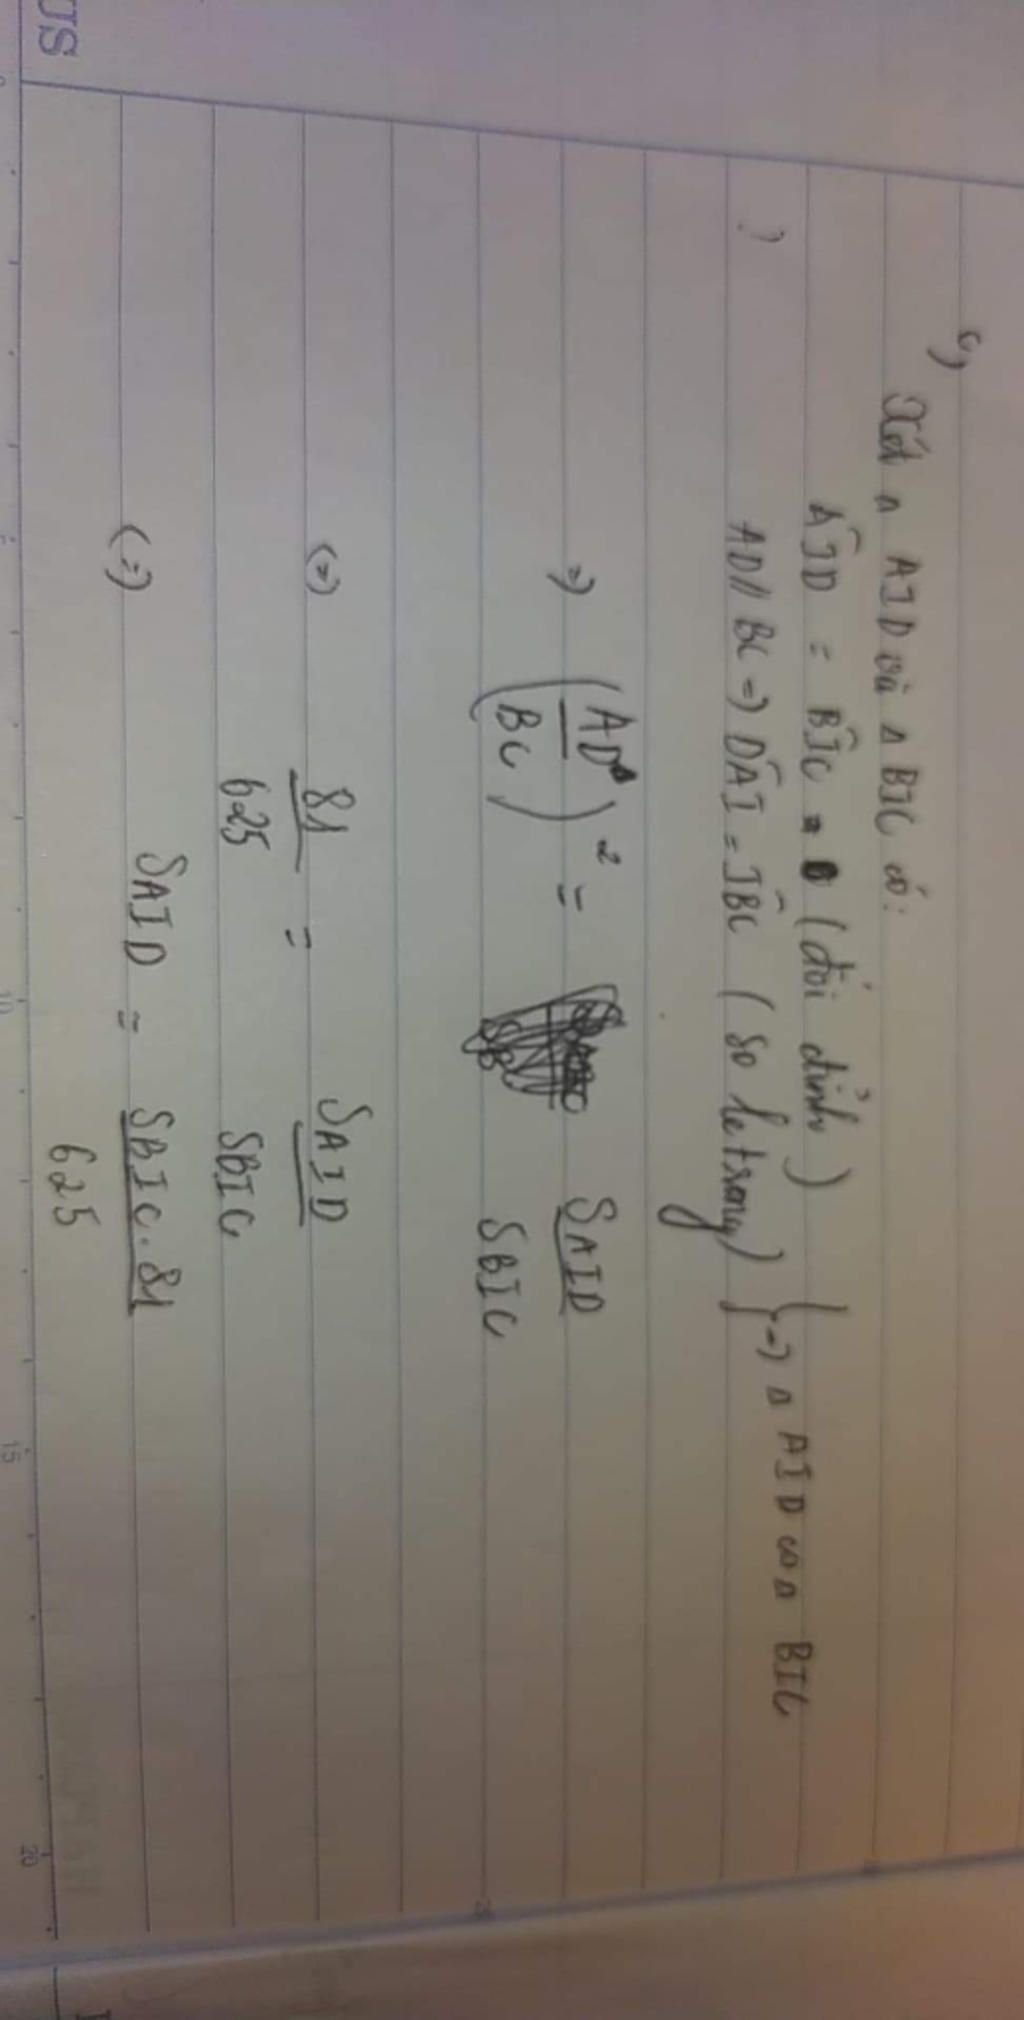 c)
Xét Δ AID và Δ BIC có:
AÎD = BÎC (đối đỉnh)
AD // BC => DÂI = IB̂C (so le trong)
} => Δ AID ∽ Δ BIC
=> (AD/BC)² = SAID/SBIC
(=) 81/625 = SAID/SBIC
(=) SAID = SBIC.81/625
US
10
15
20